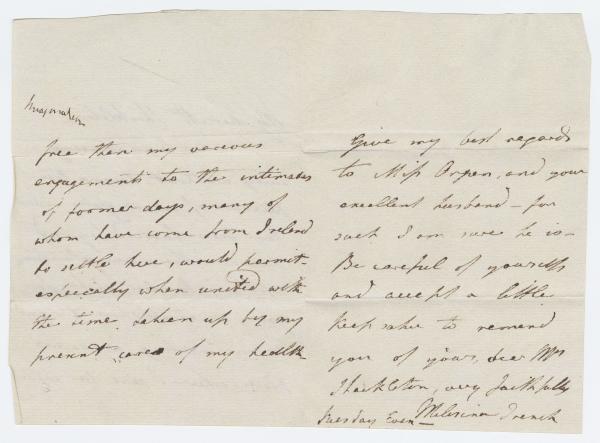 Imagination
free than my various
engagements to the intimates
of former days, many of
whom have come from Ireland
to settle here, would permit.
especially when united with
the time taken up by my
present care of my health
Give my best regards
to Miss Orpen, and your
excellent husband - for
such I am sure he is -
Be careful of yourself
and accept a little
keepsake to remind
you of yours, dear Mrs
Shackleton, very faithfully
Tuesday Even - Melesina Trench